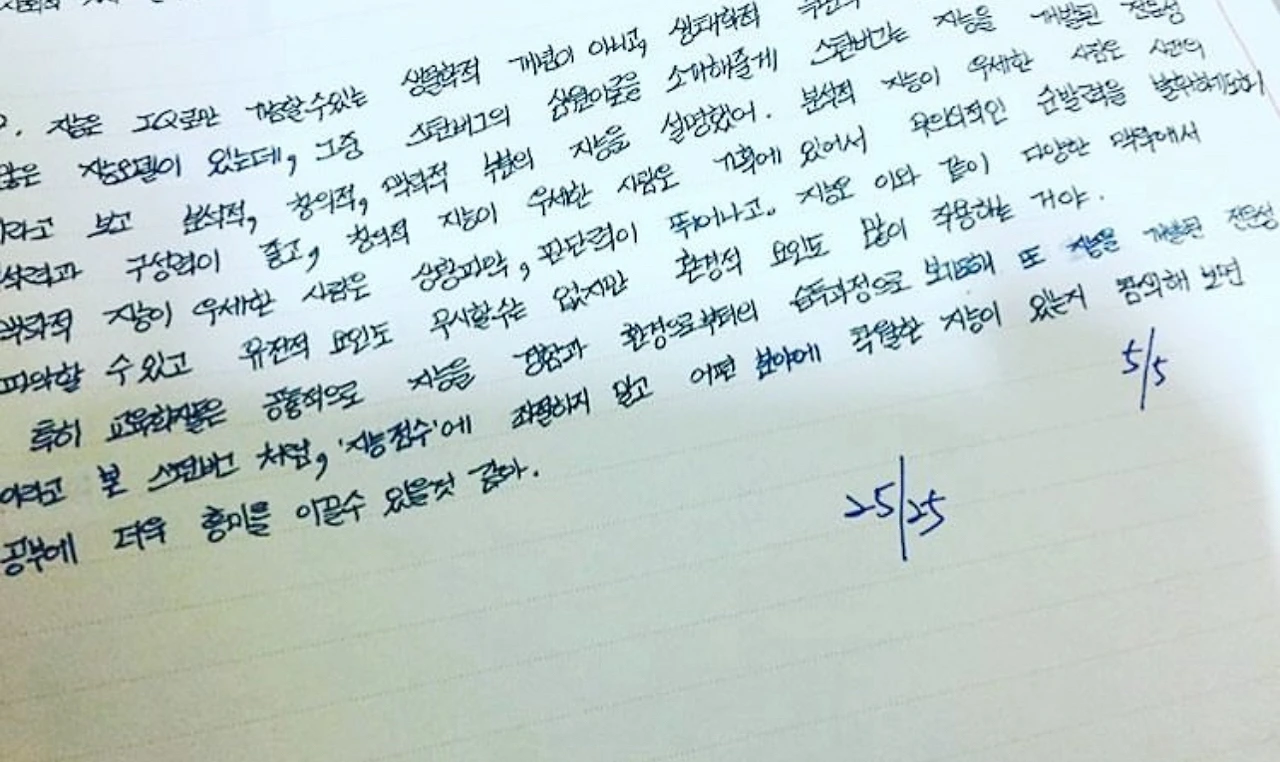 지능은 IQ로만 가늠할 수 있는 생물학적 개념이 아니고, 생태학적
많은 지능모델이 있는데, 그중 스턴버그의 삼원이론을 소개해줄게 스턴버그는 지능을 개발된 전문성
이라고 보고 분석적, 창의적, 맥락적 부분의 지능을 설명했어. 분석적 지능이 우세한 사람은 사건의
분석력과 구성력이 좋고, 창의적 지능이 우세한 사람은 기획에 있어서 무의식적인 순발력을 발휘하기도하며
맥락적 지능이 우세한 사람은 상황파악, 판단력이 뛰어나고. 지능도 이와 같이 다양한 맥락에서
파악할 수 있고 유전적 요인도 무시할수는 없지만 환경적 요인도 많이 작용하는 거야.
특히 교육학자들은 공통적으로 지능을 경험과 환경으로부터의 습득과정으로 보기도해 또 지능을 개발된 전문성
이라고 본 스턴버그 처럼, '지능점수'에 좌절하지 말고 어떤 분야에 탁월한 지능이 있는지 봐 보면
공부에 더욱 흥미를 이끌수 있을것 같아.
5/5
25/25